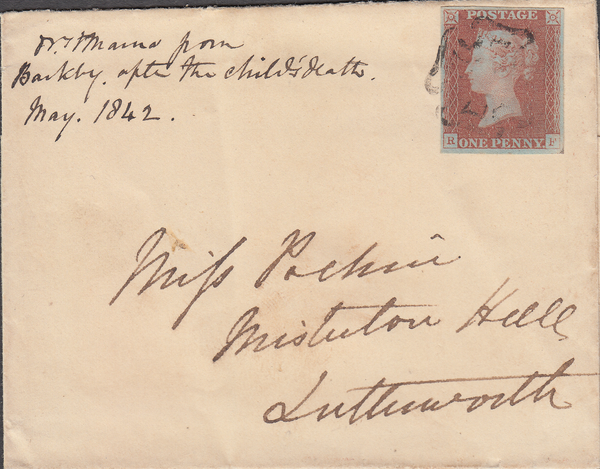 Mama from
Barkby. after the child's death.
May. 1842.
POSTAGE
R F
ONE PENNY
Miss Pochin
Misterton Hall
Lutterworth